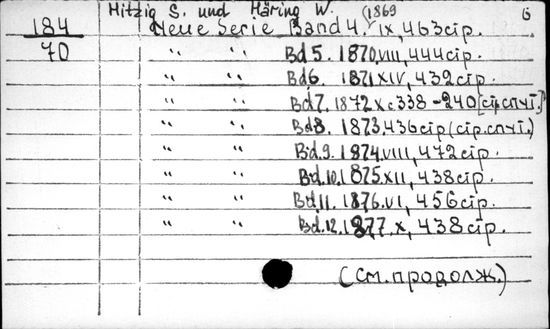 Hitzig S. und Häring W. 6
184 Neue Serie Band 4. (1869 IX, 463 стр.
70 " " Bd 5. 1870, VIII, 444 стр.
" " Bd 6. 1871 XIV, 432 стр.
" " Bd 7. 1872 X с 338-240 [стр спчт.]
" " Bd 8. 1873, 436 стр (стр. спчт.)
" " Bd. 9. 1874, VIII, 472 стр.
" " Bd. 10. 1875. XII, 438 стр.
" " Bd. 11. 1876. VI, 456 стр.
" " Bd. 12. 1877. X, 438 стр.
(См. продолж.)